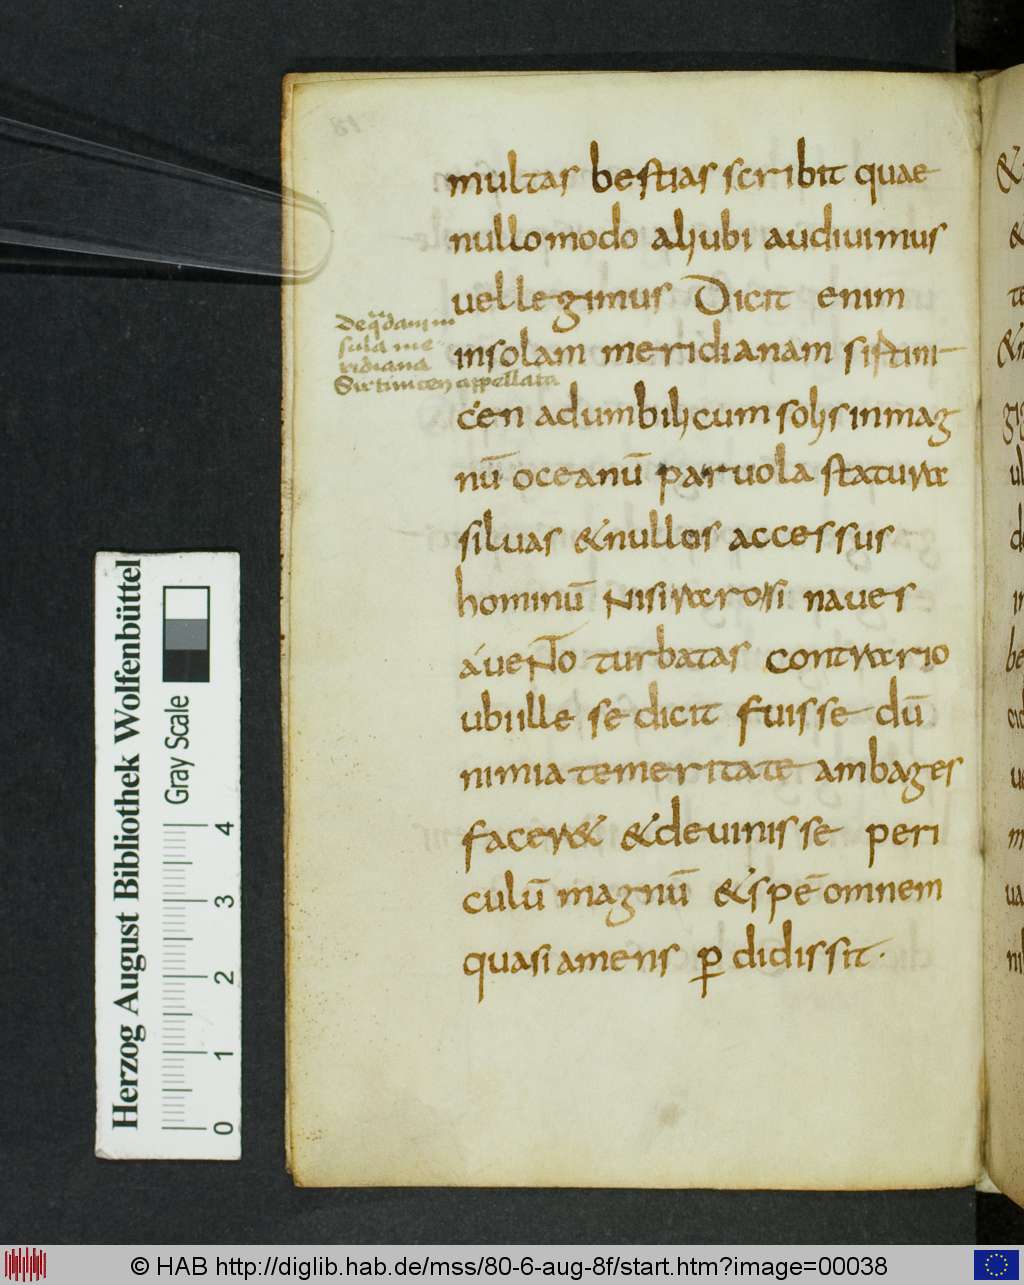 multas bestias scribit quae
nullomodo aliubi audiuimus
uellegimus Dicit enim
insolam meridianam sirtini
cen adumbilicum solis inmag
nū oceanū paruola statura
siluas &nullos accessus
hominū Nisi raro si naues
a ueNto turbatas contrario
ubi ille se dicit fuisse dū
nimia temeritate ambages
facer& &deuinisse peri
culū magnū &spē omnem
quasi amens p̱didissit·
De qͣdam in
sula me
ridiana
Sirtinicen appellata
18
Herzog August Bibliothek Wolfenbüttel
Gray Scale
0 1 2 3 4
© HAB http://diglib.hab.de/mss/80-6-aug-8f/start.htm?image=00038